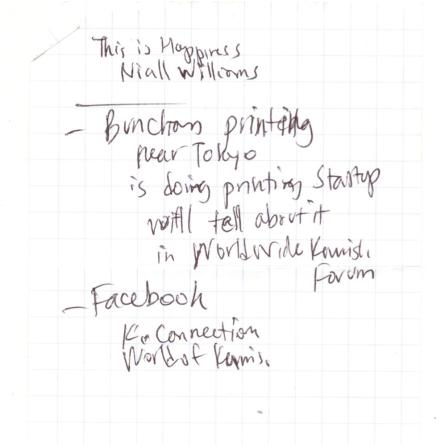 This is Happiness
Niall Williams
- Bunchan printing
near Tokyo
is doing printing Startup
will tell about it
in Worldwide
Forum
- Facebook
K. Connection
World of